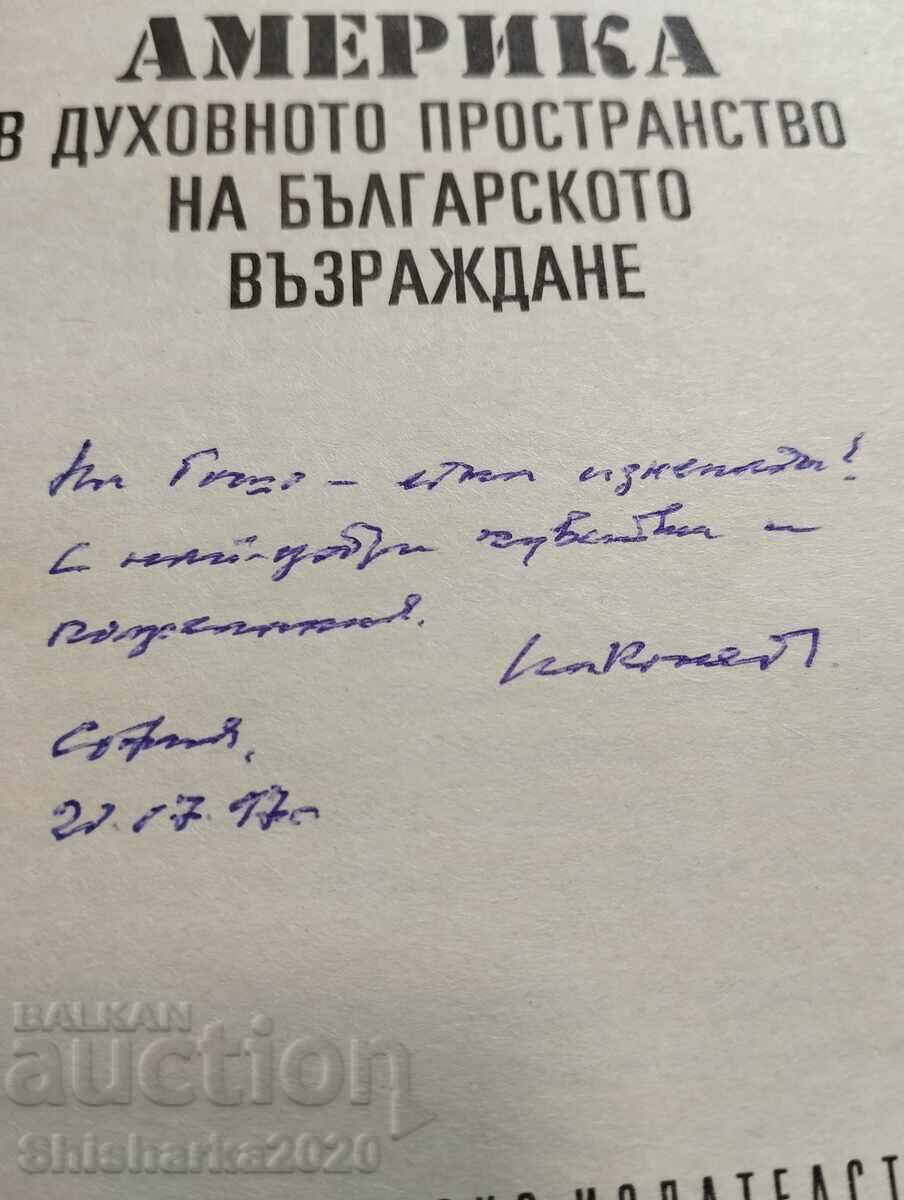 АМЕРИКА
В ДУХОВНОТО ПРОСТРАНСТВО
НА БЪЛГАРСКОТО
ВЪЗРАЖДАНЕ
На Гошо – една изненада!
С най-добри чувства и
пожелания.
София,
BALKAN
auction
Shisharka2020